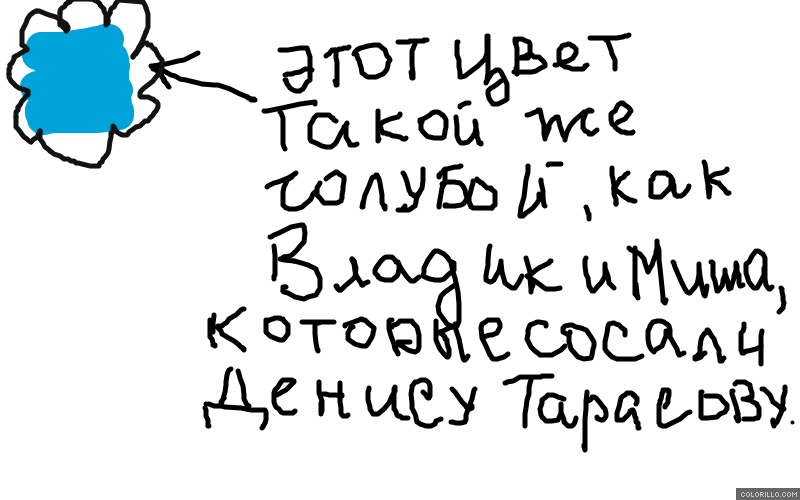 этот цвет
такой же
голубой, как
Владик и Миша,
которые сосали
Денису Тарасову.
COLORILLO.COM